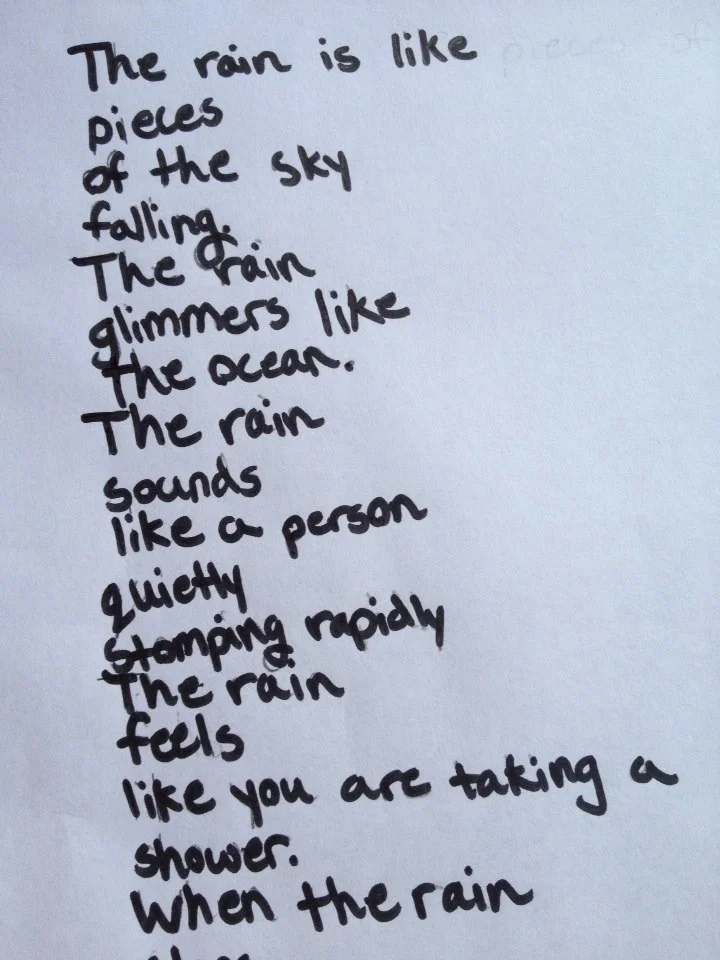 The rain is like
pieces
of the sky
falling.
The rain
glimmers like
the ocean.
The rain
sounds
like a person
quietly
stomping rapidly
The rain
feels
like you are taking a
shower.
When the rain